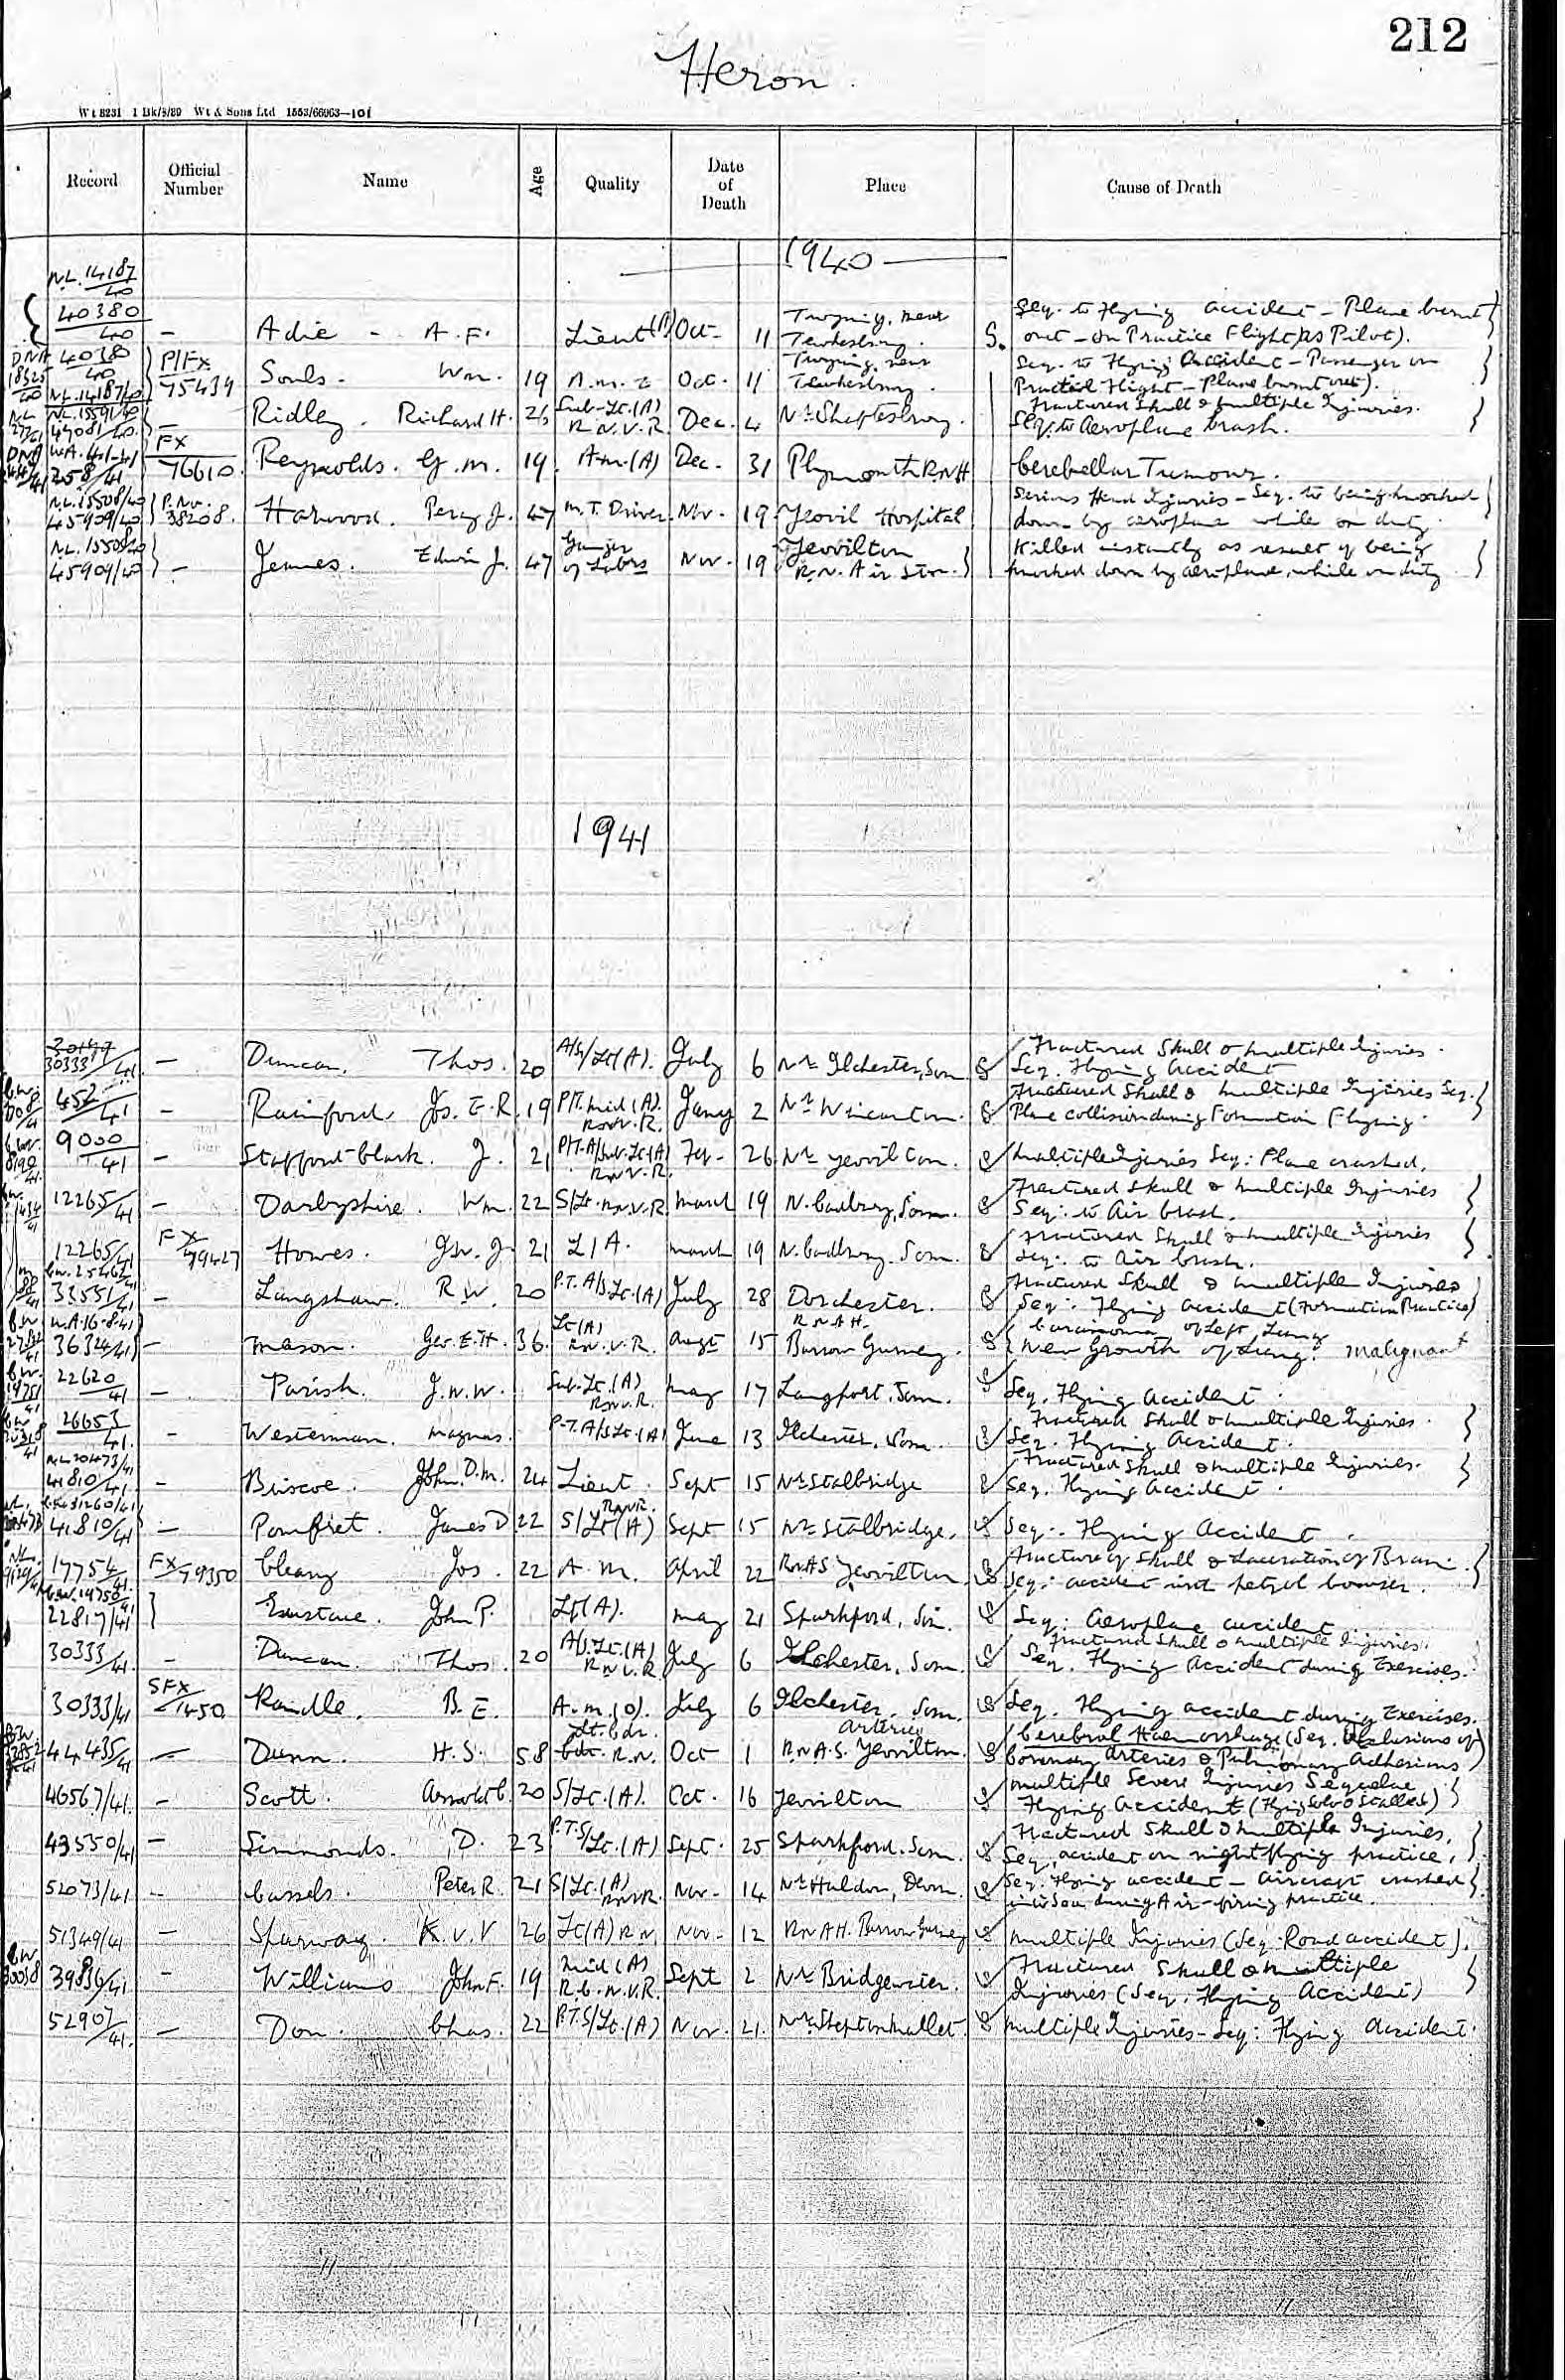 212
Heron
Wt 8231 1 Bk/8/39 Wt & Sons Ltd 1553/66963—101
Record Official Number Name Age Quality Date of Death Place Cause of Death
1940
N.L. 14187/40
40380/40 — Adie - A. F. Lieut (A) Oct 11 Twyning, near Tewkesbury. S. Seq. to Flying accident - Plane burnt out - On Practice Flight (As Pilot).
4038/40 N.L. 14187/40 P/FX 75439 Souls. Wm. 19 Oct. 11 Twyning, near Tewkesbury. Seq. to Flying Accident - Passenger on Practice Flight - Plane burnt out).
N.L. 15591/40 49081/40 — Ridley. Richard H. 26 Sub-Lt. (A) R.N.V.R. Dec. 4 Nr. Shaftesbury. Fractured Skull & multiple Injuries. Seq. to Aeroplane Crash.
258/41 FX 76610. Reynolds. G. M. 19. A.M.(A) Dec. 31 Plymouth RNH Cerebellar Tumour.
N.L. 15508/40 45909/40 38208. Harwood. Percy J. 47 M.T. Driver Nov. 19 Yeovil Hospital Serious Head Injuries - Seq. to being knocked down by aeroplane while on duty.
N.L. 15508/40 45909/40 — Jeanes. Edwin J. 47 Ganger of Labrs Nov. 19 Yeovilton R.N. Air Stn. Killed instantly as result of being knocked down by aeroplane, while on duty
1941
30333/41 — Duncan. Thos. 20 A/S/Lt(A). July 6 Nr. Ilchester, Som Fractured Skull & multiple Injuries. Seq. Flying accident
452/41 — Rainford. Js. E. R. 19 P/T. Mid (A). R.N.V.R. Jany 2 Nr. Wincanton. Fractured Skull & multiple Injuries Seq. Plane collision during Formation Flying.
9000/41 — Stafford-Clark. J. 21 P/T. A/Sub. Lt (A) R.N.V.R. Feb. 26 Nr. Yeovilton. Multiple Injuries Seq: Plane crashed.
12265/41 — Darbyshire. Wm. 22 S/Lt. R.N.V.R March 19 N. Cadbury, Som. Fractured Skull & multiple Injuries Seq: to Air Crash.
12265/41 FX 79427 Howes. J. 21 L/A. March 19 N. Cadbury. Som. Fractured Skull & multiple Injuries Seq: to Air Crash.
33551/41 — Langshaw. R. W. 20 P.T. A/S Lt. (A) July 28 Dorchester. Fractured Skull & multiple Injuries Seq: Flying accident (Formation Practice)
W.A. 16.8.41 36324/41 — Mason. Geo. E. H. 36. Lt (A) R.N.V.R. Augt 15 R N A H. Barrow Gurney. Carcinoma of Left Lung New Growth of Lung. Malignant
22620/41 — Parish. J. W. W. Sub. Lt. (A) R.N.V.R. May 17 Langport. Som. Seq. Flying Accident.
26653/41. — Westerman. Magnus. P-T. A/S Lt. (A) June 13 Ilchester, Som. Fractured Skull & multiple Injuries. Seq. Flying Accident.
41810/41 — Briscoe. John. D. M. 24 Lieut. Sept 15 Nr. Stalbridge Fractured Skull & multiple Injuries. Seq. Flying Accident.
41810/41 — Pomfret. James D 22 S/Lt (A) RNVR. Sept 15 Nr. Stalbridge. Seq:. Flying Accident.
17754/41 FX/79350 Cleary Jos. 22 A. M. April 22 R.N.A.S Yeovilton Fracture of Skull & laceration of Brain. Seq: accident with petrol bowser.
22817/41 Eustace. John P. Lt (A). May 21 Sparkford, Som. Seq: Aeroplane accident
30333/41. — Duncan. Thos. 20 A/S. Lt. (A) R.N.V.R July 6 Ilchester, Som. Fractured Skull & multiple Injuries. Seq. Flying Accident during Exercises.
30333/41 SFX 1450 Randle. B. E. A. M. (O). July 6 Ilchester, Som. Seq. Flying accident during Exercises.
44435/41 — Dunn. H. S. 58 R.N. Oct 1 R.N.A.S. Yeovilton. Cerebral Haemorrhage (Seq. Occlusions of Coronary Arteries & Pulmonary Adhesions)
46567/41. — Scott. Arnold C. 20 S/Lt. (A). Oct. 16 Yeovilton Multiple Severe Injuries Sequelae Flying Accident (Flying Solo & Stalled)
43550/41 — Simmonds. D. 23 P.T.S/Lt. (A) Sept. 25 Sparkford. Som. Fractured Skull & multiple Injuries. Seq. accident on night flying practice.
52073/41 — Cassels. Peter R. 21 S/Lt. (A) RNVR. Nov. 14 Nr. Haldon, Devon. Seq. Flying accident - Aircraft crashed into Sea during Air-firing practice.
51349/41 — Spurway. K. V. V 26 Lt (A) R N Nov. 12 R N A H. Barrow Gurney Multiple Injuries (Seq. Road accident).
39836/41 — Williams John F. 19 Mid (A) R.C.N.V.R. Sept 2 Nr. Bridgewater. Fractured Skull & multiple Injuries (Seq. Flying Accident)
52907/41. — Don. Chas. 22 P.T.S/Lt. (A) Nov. 21. Nr. Shepton Mallet. Multiple Injuries - Seq: Flying Accident.